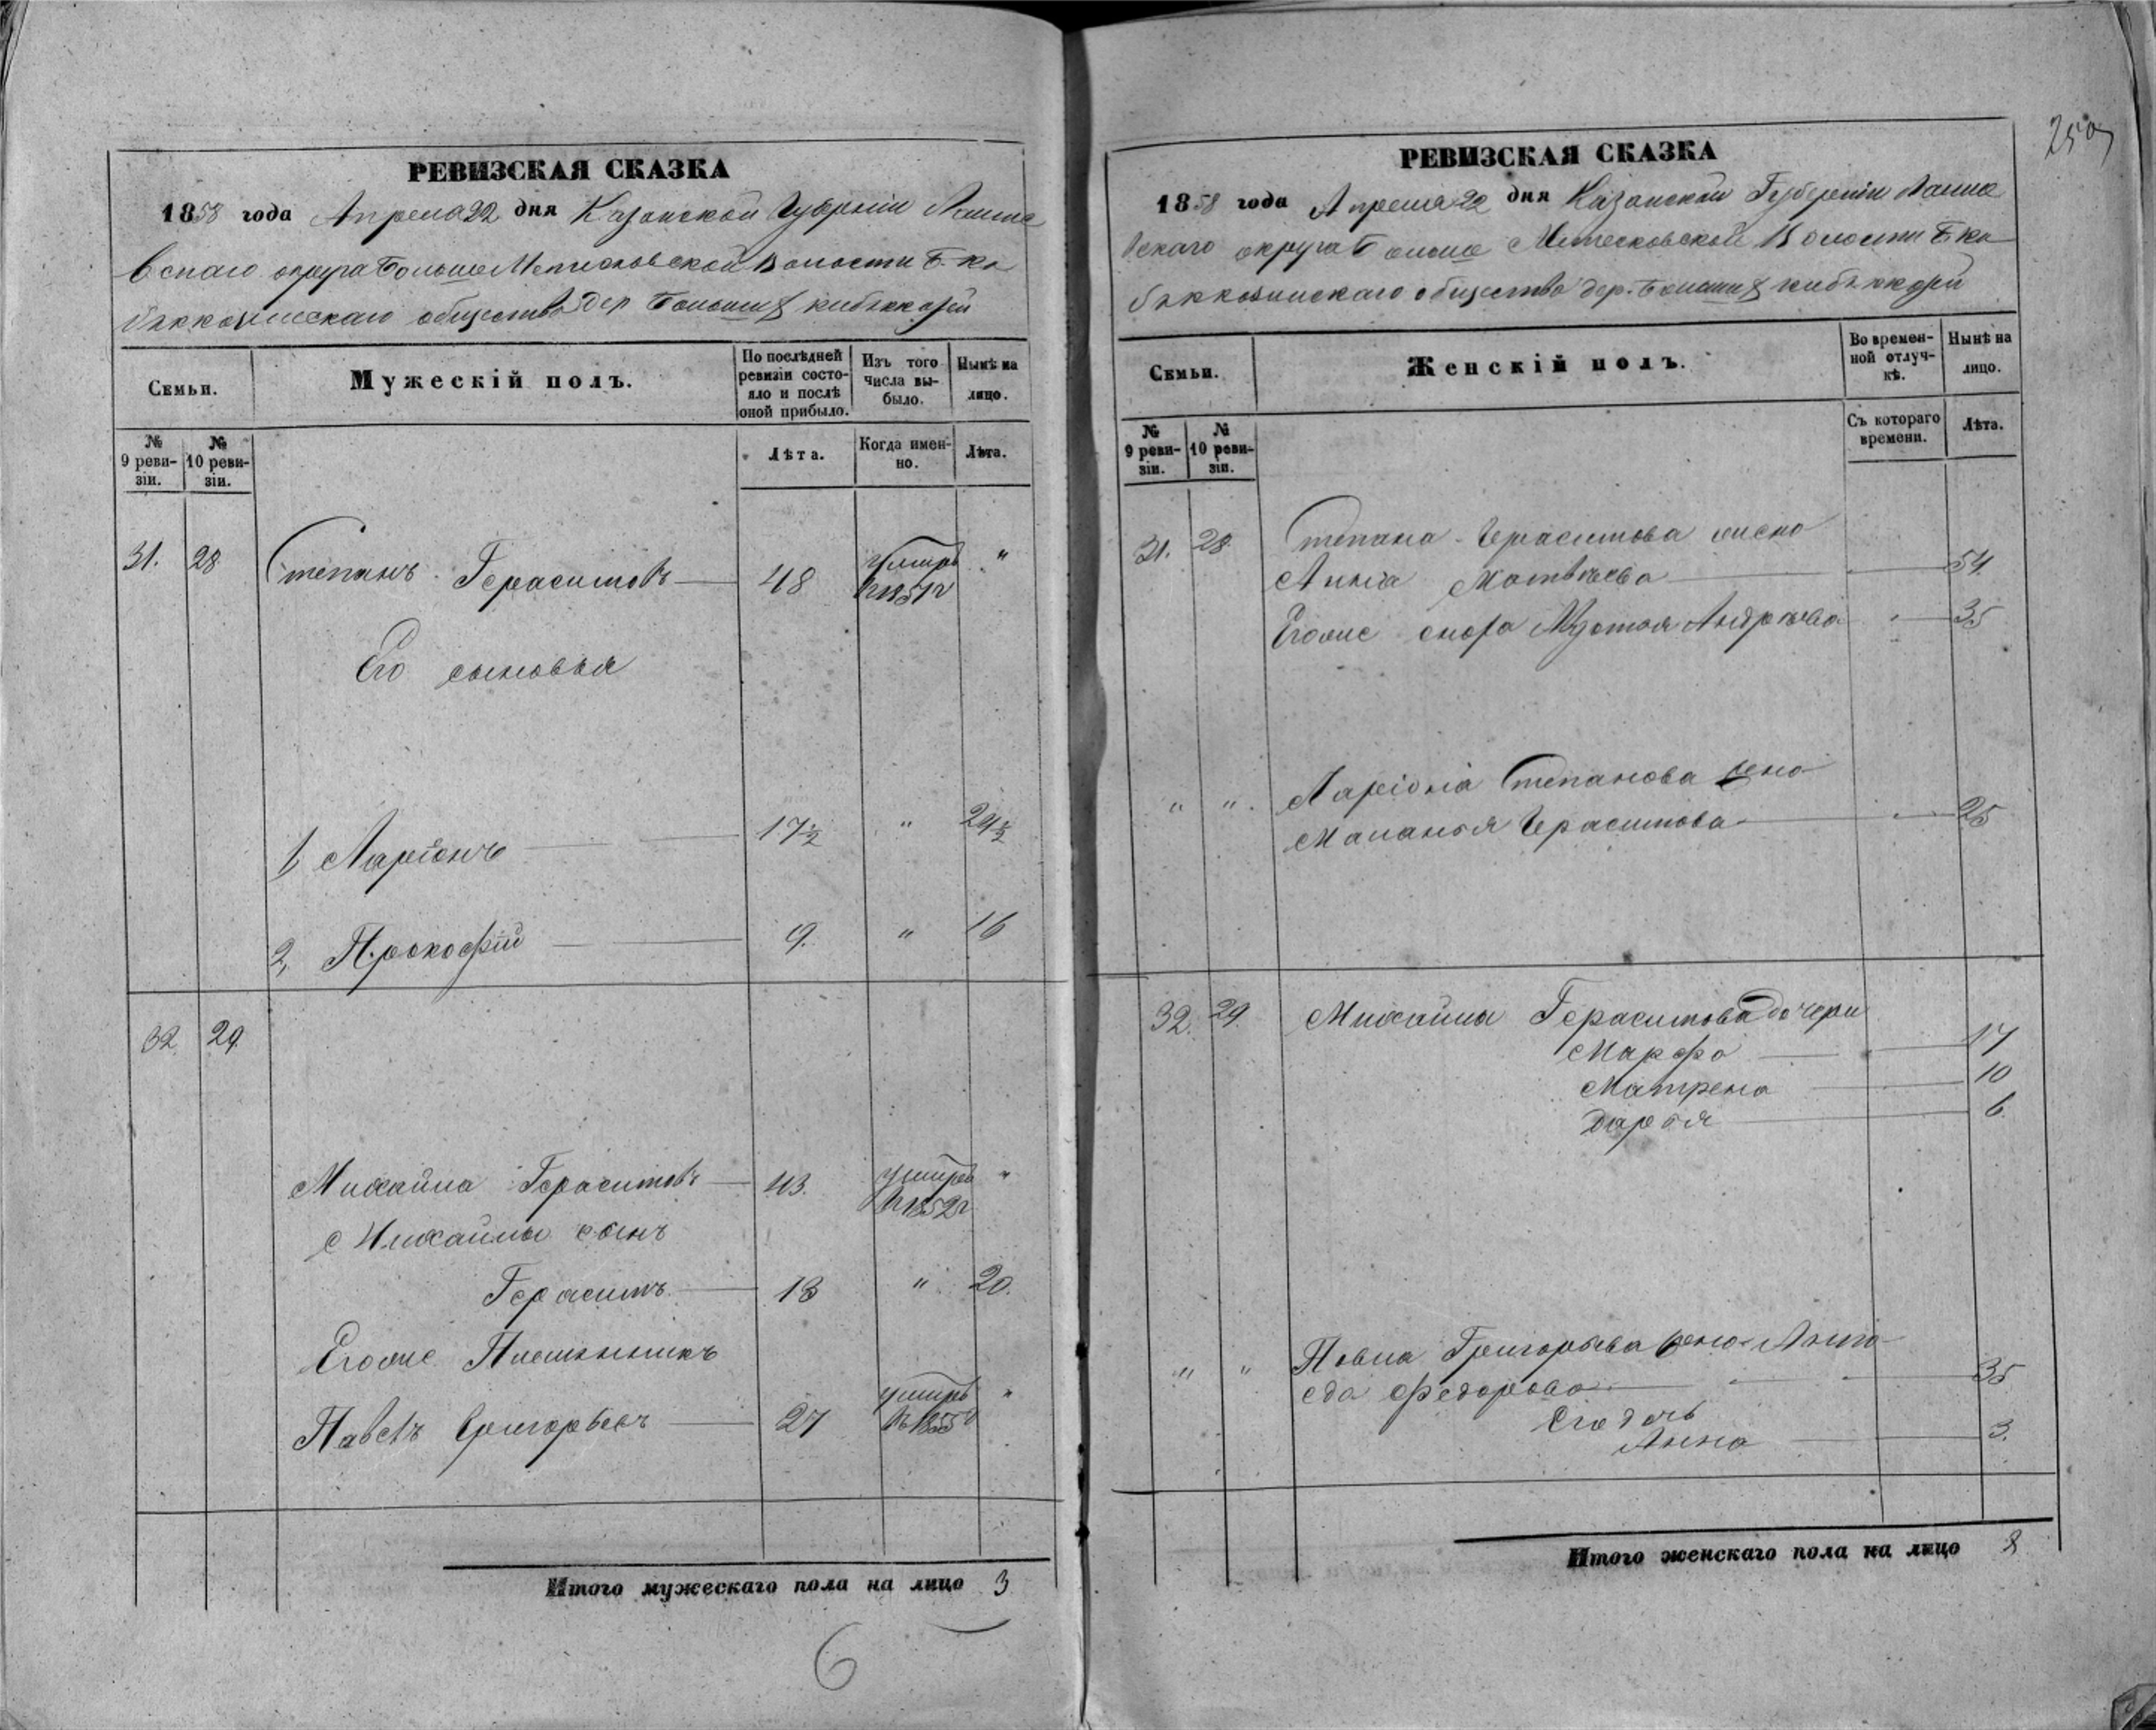 РЕВИЗСКАЯ СКАЗКА
1858 года Апреля 22 дня Казанской Губерніи Лаише
вскаго округа Больше Метесковской Волости Б. Ки
бяккозинскаго общества дер. Большихъ кибяккозей
Семьи.
Мужескій полъ.
По послѣдней ревизіи состо-
яло и послѣ оной прибыло.
Изъ того числа вы-
было.
Нынѣ на лицо.
№ 9 реви-
зіи.
№ 10 реви-
зіи.
Лѣта.
Когда имен-
но.
Лѣта.
31. 28 Степанъ Герасимовъ 48 умеръ въ 1851 г "
Его сыновья
1, Ларіонъ 17½ " 24½
2, Прокофій 9. " 16
32 29.
Михайла Герасимовъ 43. умеръ въ 1852 г "
Михайлы сынъ
Герасимъ 13 " 20.
Егоже Племянникъ
Павелъ Григорьевъ 27 умеръ въ 1855 г "
Итого мужескаго пола на лицо 3
6
250
РЕВИЗСКАЯ СКАЗКА
1858 года Апреля 22 дня Казанской Губерніи Лаише
вскаго округа Больше Метесковской Волости Б. Ки
бяккозинскаго общества дер. Большихъ кибяккозей
Семьи.
Женскій полъ.
Во времен-
ной отлуч-
кѣ.
Нынѣ на лицо.
№ 9 реви-
зіи.
№ 10 реви-
зіи.
Съ котораго времени.
Лѣта.
31. 28. Степана Герасимова жена
Анна Матвѣева 54.
Егоже сноха Андрѣева " 35
" " Ларіона Степанова жена
Маланья Герасимова " 25
32. 29. Михайлы Герасимова дочери
Марфа 17
Матрена 10
Дарья 6.
" " Павла Григорьева жена
Федорова " 35
Его дочь
Анна 3.
Итого женскаго пола на лицо 8